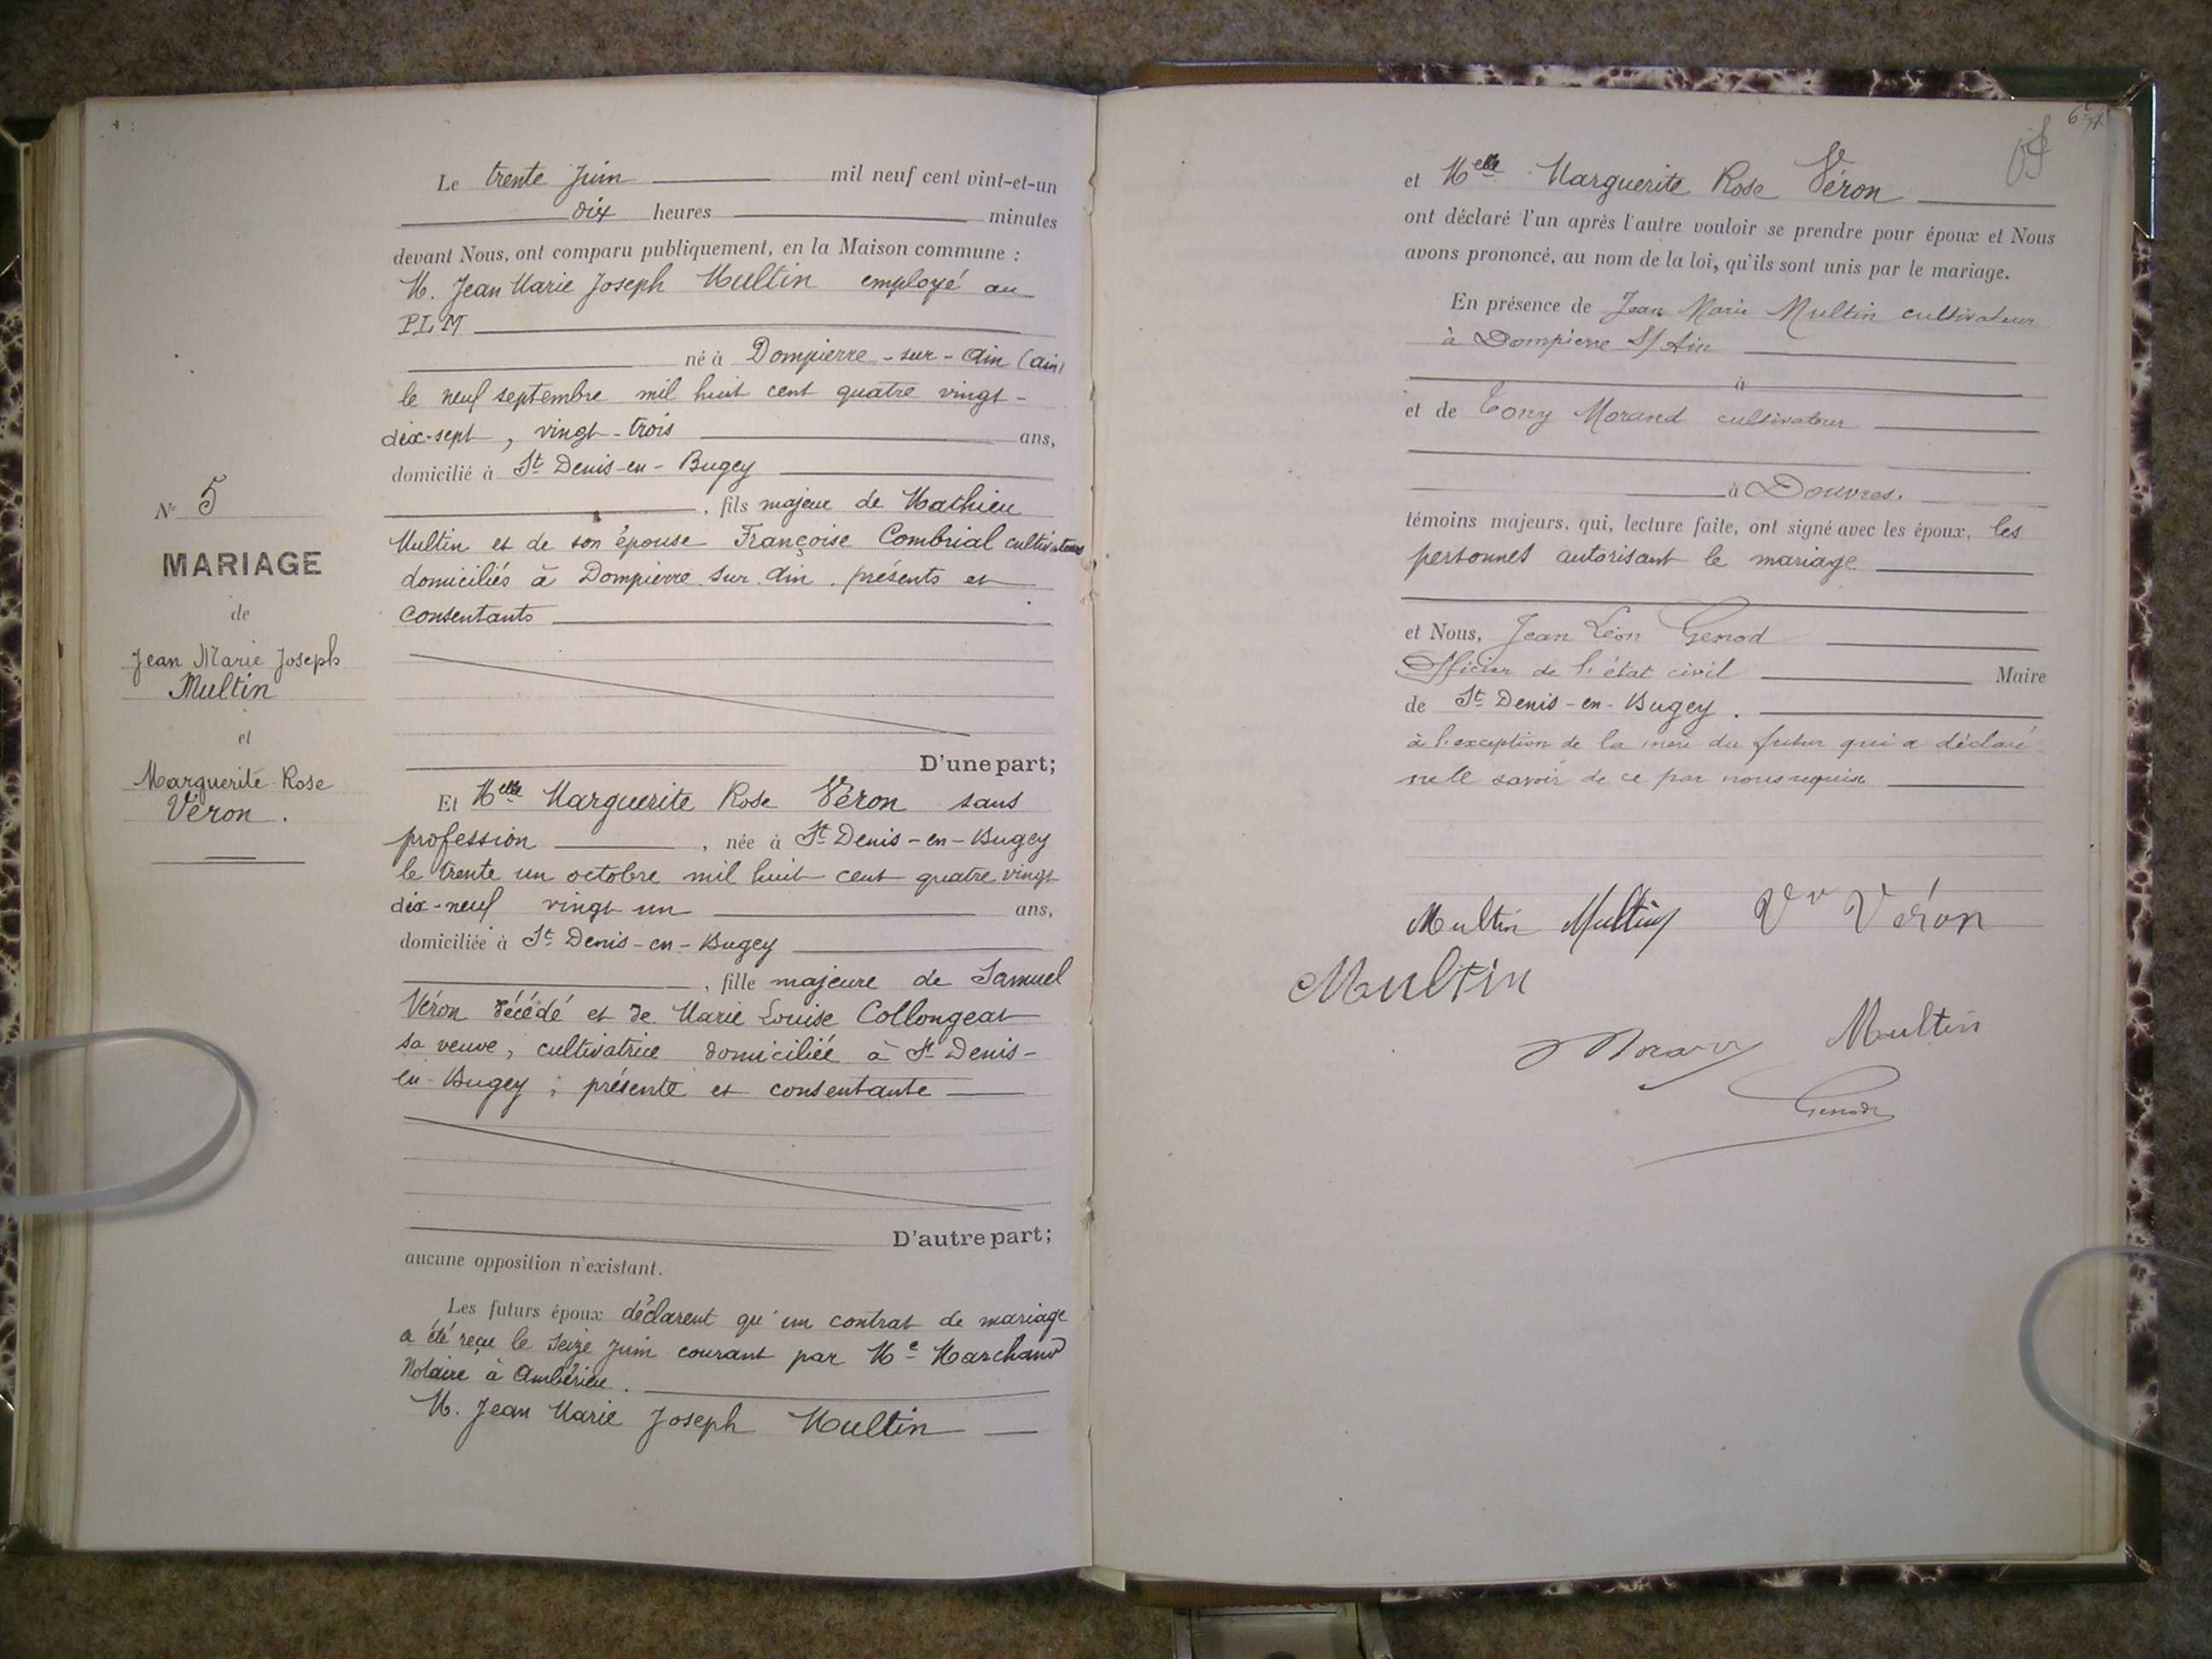 Nº 5
MARIAGE
de
Jean Marie Joseph
Multin
et
Marguerite Rose
Véron.
Le trente Juin mil neuf cent vint-et-un
dix heures minutes
devant Nous, ont comparu publiquement, en la Maison commune :
M. Jean Marie Joseph Multin employé au
PLM
né à Dompierre-sur-Ain (Ain)
le neuf septembre mil huit cent quatre vingt-
dix-sept, vingt-trois ans,
domicilié à St Denis-en-Bugey
, fils majeur de Mathieu
Multin et de son épouse Françoise Combrial cultivateurs
domiciliés à Dompierre sur Ain. présents et
consentants
D'une part;
Et Melle Marguerite Rose Véron sans
profession , née à St Denis-en-Bugey
le trente un octobre mil huit cent quatre vingt
dix-neuf vingt un ans,
domiciliée à St Denis-en-Bugey
, fille majeure de Samuel
Véron décédé et de Marie Louise Collongeat
sa veuve, cultivatrice domiciliée à St Denis-
en-Bugey, présente et consentante
D'autre part;
aucune opposition n'existant.
Les futurs époux déclarent qu'un contrat de mariage
a été reçu le seize juin courant par Me Marchand
Notaire à Ambérieu.
M. Jean Marie Joseph Multin
et Melle Marguerite Rose Véron
ont déclaré l'un après l'autre vouloir se prendre pour époux et Nous
avons prononcé, au nom de la loi, qu'ils sont unis par le mariage.
En présence de Jean Marie Multin cultivateur
à Dompierre S/ Ain
à
et de Tony Morand cultivateur
à Douvres.
témoins majeurs, qui, lecture faite, ont signé avec les époux, les
personnes autorisant le mariage
et Nous, Jean Léon Genod
Officier de l'état civil Maire
de St Denis-en-Bugey.
à l'exception de la mère du futur qui a déclaré
ne le savoir de ce par nous requise
Multin Multin Vve Véron
Multin
Morand Multin
Genod